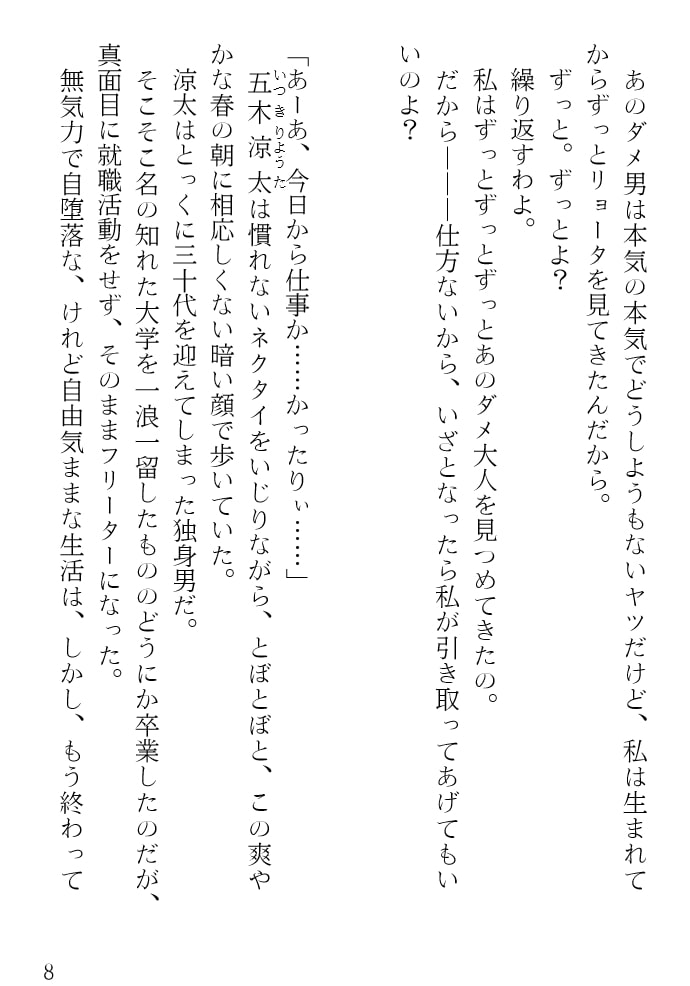 あのダメ男は本気の本気でどうしようもないヤツだけど、私は生まれて
からずっとリョータを見てきたんだから。
ずっと。ずっとよ？
繰り返すわよ。
私はずっとずっとずっとあのダメ大人を見つめてきたの。
だから―――仕方ないから、いざとなったら私が引き取ってあげてもい
いのよ？
「あーあ、今日から仕事か……かったりぃ……」
五木涼太は慣れないネクタイをいじりながら、とぼとぼと、この爽や
いつきりようた
かな春の朝に相応しくない暗い顔で歩いていた。
涼太はとっくに三十代を迎えてしまった独身男だ。
そこそこ名の知れた大学を一浪一留したもののどうにか卒業したのだが、
真面目に就職活動をせず、そのままフリーターになった。
無気力で自堕落な、けれど自由気ままな生活は、しかし、もう終わって
8